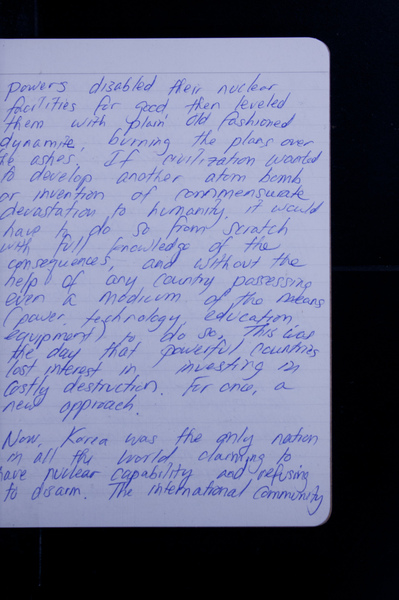 powers disabled their nuclear
facilities for good then leveled
them with plain old fashioned
dynamite, burning the plans over
the ashes. If civilization wanted
to develop another atom bomb
or invention of commensurate
devastation to humanity, it would
have to do so from scratch
with full knowledge of the
consequences, and without the
help of any country possessing
even a modicum of the means
(power, technology, education,
equipment) to do so. This was
the day that powerful countries
lost interest in investing in
costly destruction. For once, a
new approach.
Now, Korea was the only nation
in all the world claiming to
have nuclear capability and refusing
to disarm. The international community